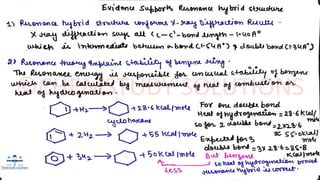 Evidence Supports Resonance hybrid structure
1) Resonance hybrid structure conforms X-ray Diffraction Results -
X-ray diffraction says all C-C bond length - 1.40A°
which is intermediate between σ-bond (1.54A°) & double bond (1.34A°)
2) Resonance theory explains stability of benzene ring -
The Resonance energy is responsible for unusual stability of benzene
which can be calculated by measurement of heat of combustion or
heat of hydrogenation.
+H₂ → +28.6 kcal/mole
cyclohexane
+ 2H₂ → + 55 kcal/mole
+ 3H₂ → + 50 kcal/mole
less
For one double bond
Heat of hydrogenation = 28.6 kcal/mole
so for 2 double bond = 2x28.6
= 55.0 kcal/mole
Expected for 3
double bond = 3x 28.6 = 85.8 kcal/mole
But benzene
so heat of hydrogenation proved
resonance hybrid is correct.